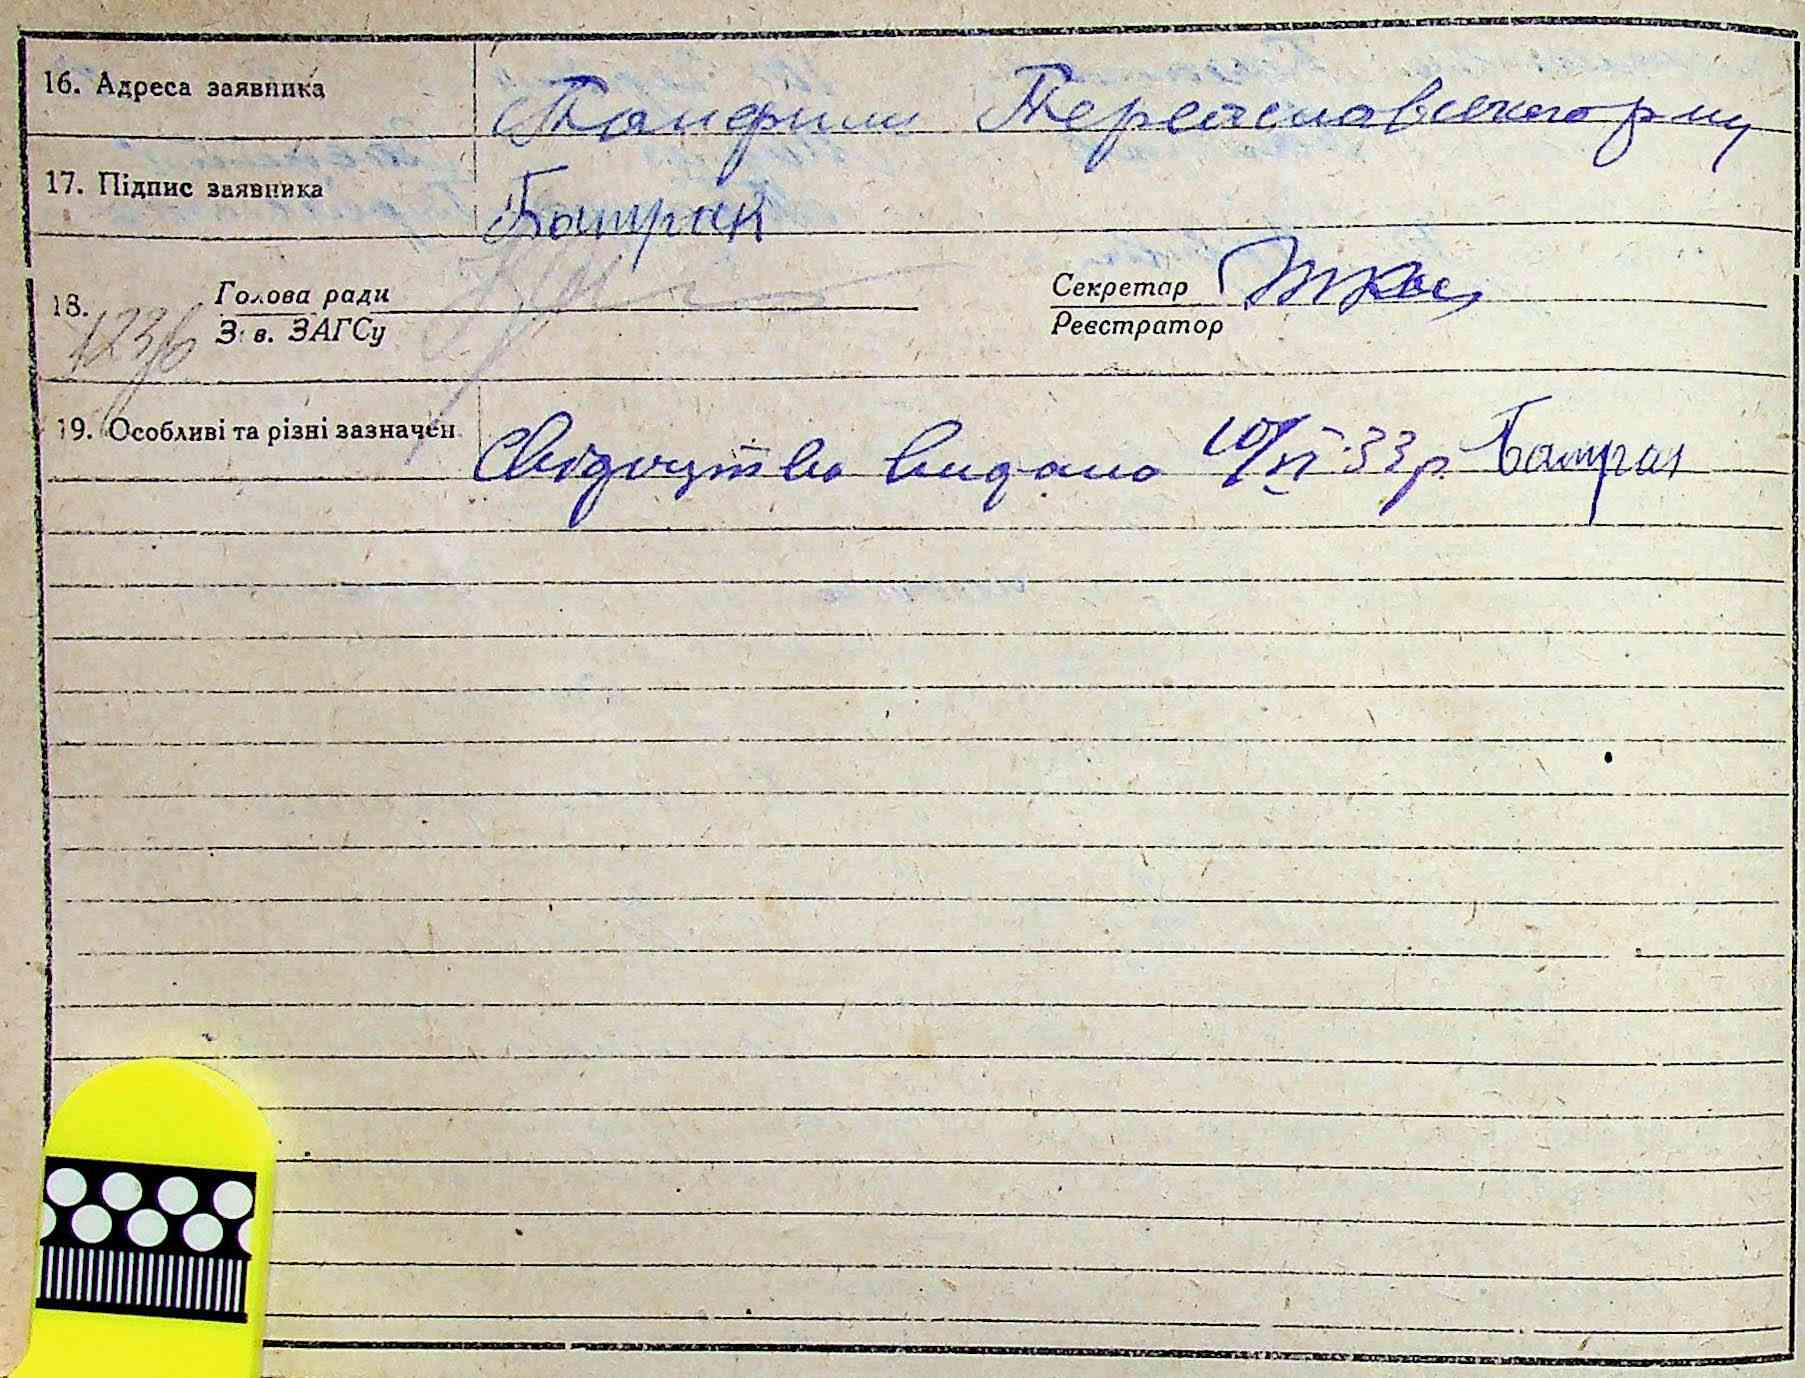 16. Адреса заявника Панфили Переяславського р-ну
17. Підпис заявника Батрак
18. Голова ради Секретар
Зав. ЗАГСу Реєстратор
1236
19. Особливі та різні зазначен. Свідоцтво видано 10/VI-33 р. Батрак